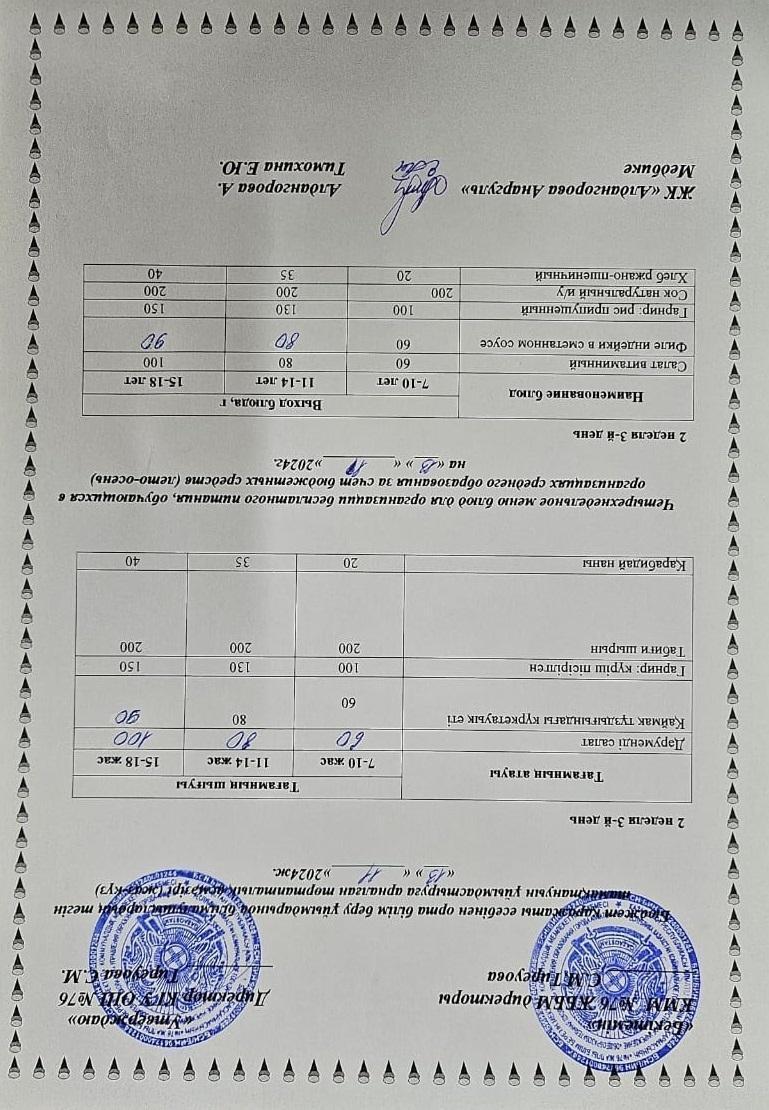 «Бекітемін» «Утверждаю»
КММ № 76 ЖББМ директоры Директор КГУ ОШ №76
С.М.Тиреуова Тиреуова С.М.
Бюджет қаражаты есебінен орта білім беру ұйымдарында білімалушыларының тегін
тамақтануын ұйымдастыруға арналған төртапталық ас мәзірі (жаз-күз)
«13» « 11 »2024ж.
2 неделя 3-й день
Тағамның атауы Тағамның шығуы
7-10 жас 11-14 жас 15-18 жас
Дәруменді салат 60 80 100
Қаймақ тұздығындағы күркетауық еті 60 80 90
Гарнир: күріш пісірілген 100 130 150
Табиғи шырын 200 200 200
Қарабидай наны 20 35 40
Четырехнедельное меню блюд для организации бесплатного питания, обучающихся в
организациях среднего образования за счет бюджетных средств (лето-осень)
на «13» « 11 »2024г.
2 неделя 3-й день
Наименование блюд Выход блюда, г
7-10 лет 11-14 лет 15-18 лет
Салат витаминный 60 80 100
Филе индейки в сметанном соусе 60 80 90
Гарнир: рис припущенный 100 130 150
Сок натуральный и/у 200 200 200
Хлеб ржано-пшеничный 20 35 40
ЖК « Алдангорова Анаргуль» Алдангорова А.
Медбике Тимохина Е.Ю.